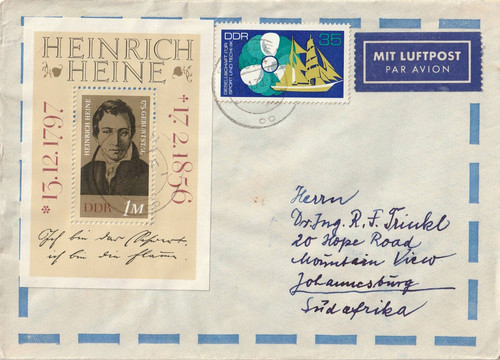 HEINRICH
HEINE
*13.12.1797
*17.2.1856
HEINRICH HEINE
175. GEBURTSTAG
DDR 1M
Ich bin das Schwert,
ich bin die Flamme.
DDR 35
GESELLSCHAFT FÜR
SPORT UND TECHNIK
MIT LUFTPOST
PAR AVION
Herrn
Dr. Ing. R. F. Trinkl
20 Hope Road
Mountain View
Johannesburg
Südafrika